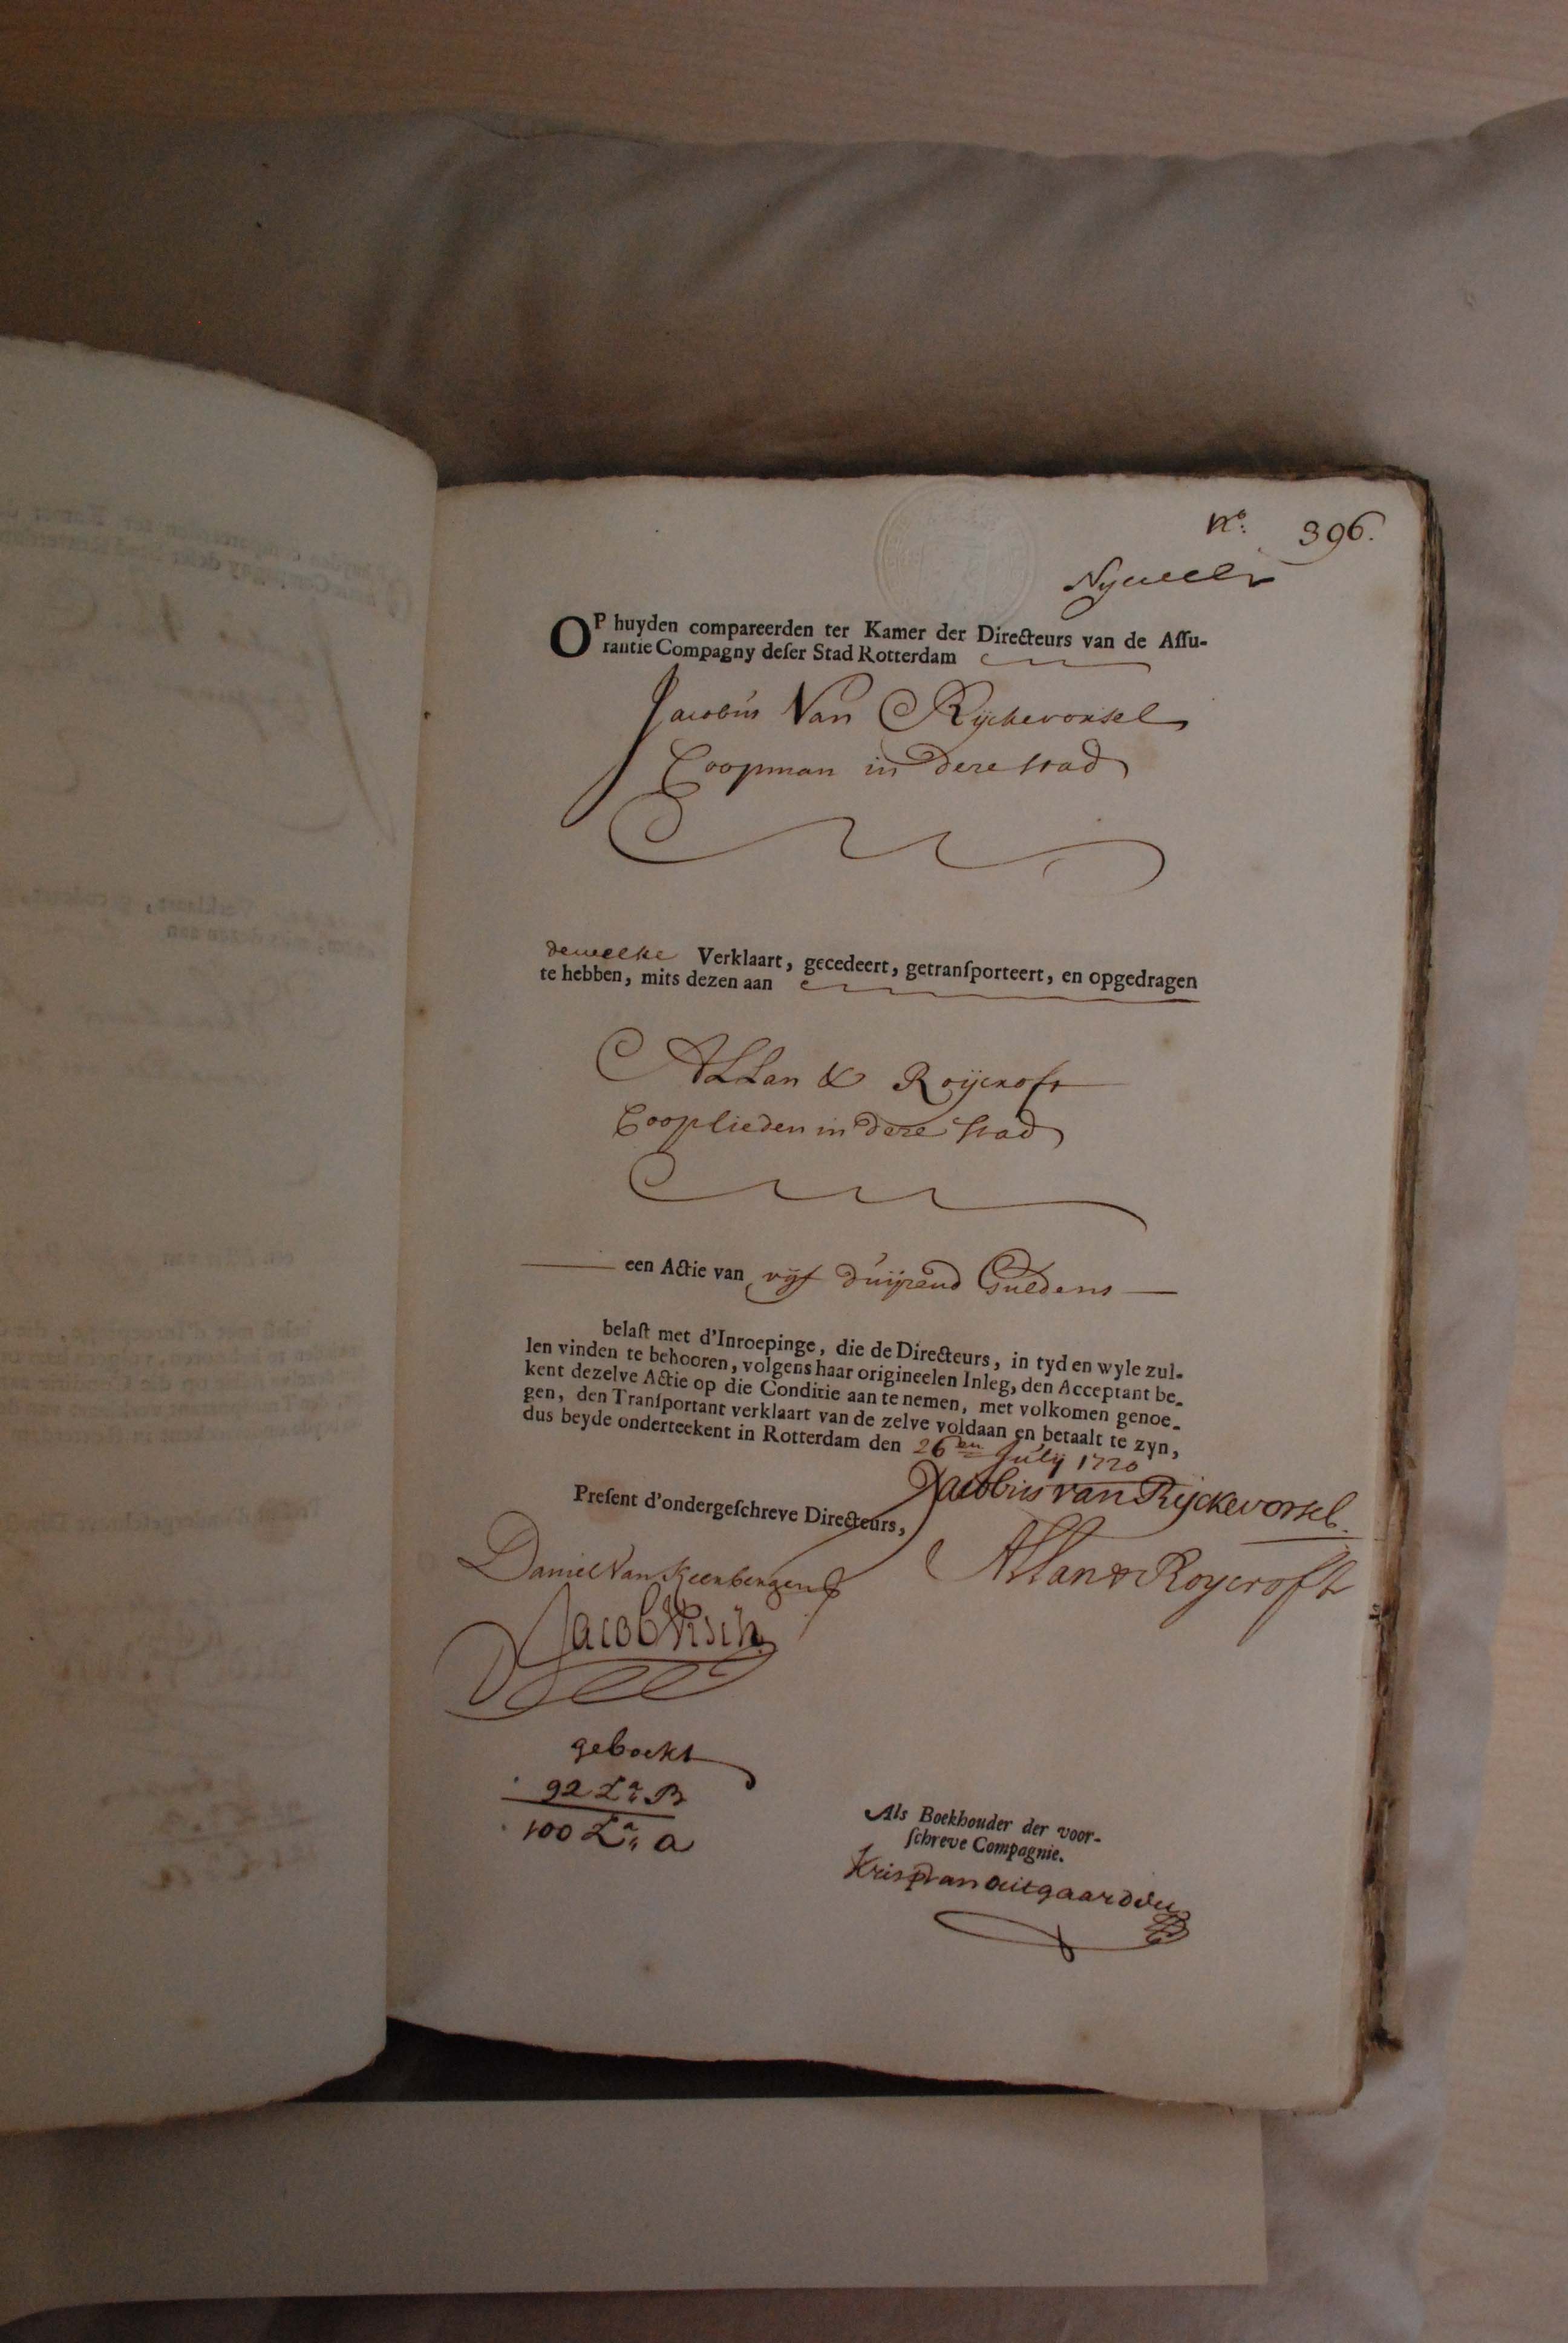 N.o 396.
OP huyden compareerden ter Kamer der Directeurs van de Assu-
rantie Compagny deser Stad Rotterdam
Jacobus Van Rijckevorsel
Coopman in deze stad
dewelke Verklaart, gecedeert, getransporteert, en opgedragen
te hebben, mits dezen aan
Allan & Roijcroft
Cooplieden in deze stad
een Actie van vijf duijzend Guldens
belast met d'Inroepinge, die de Directeurs, in tyd en wyle zul-
len vinden te behooren, volgens haar origineelen Inleg, den Acceptant be-
kent dezelve Actie op die Conditie aan te nemen, met volkomen genoe-
gen, den Transportant verklaart van de zelve voldaan en betaalt te zyn,
dus beyde onderteekent in Rotterdam den 26en July 1720
Jacobus van Rijckevorsel.
Present d'ondergeschreve Directeurs,
Allan & Roycroft
Daniel Van
Jacob Visch
geboekt
92 La B
100 La a
Als Boekhouder der voor-
schreve Compagnie.
Krisp van outgaarden